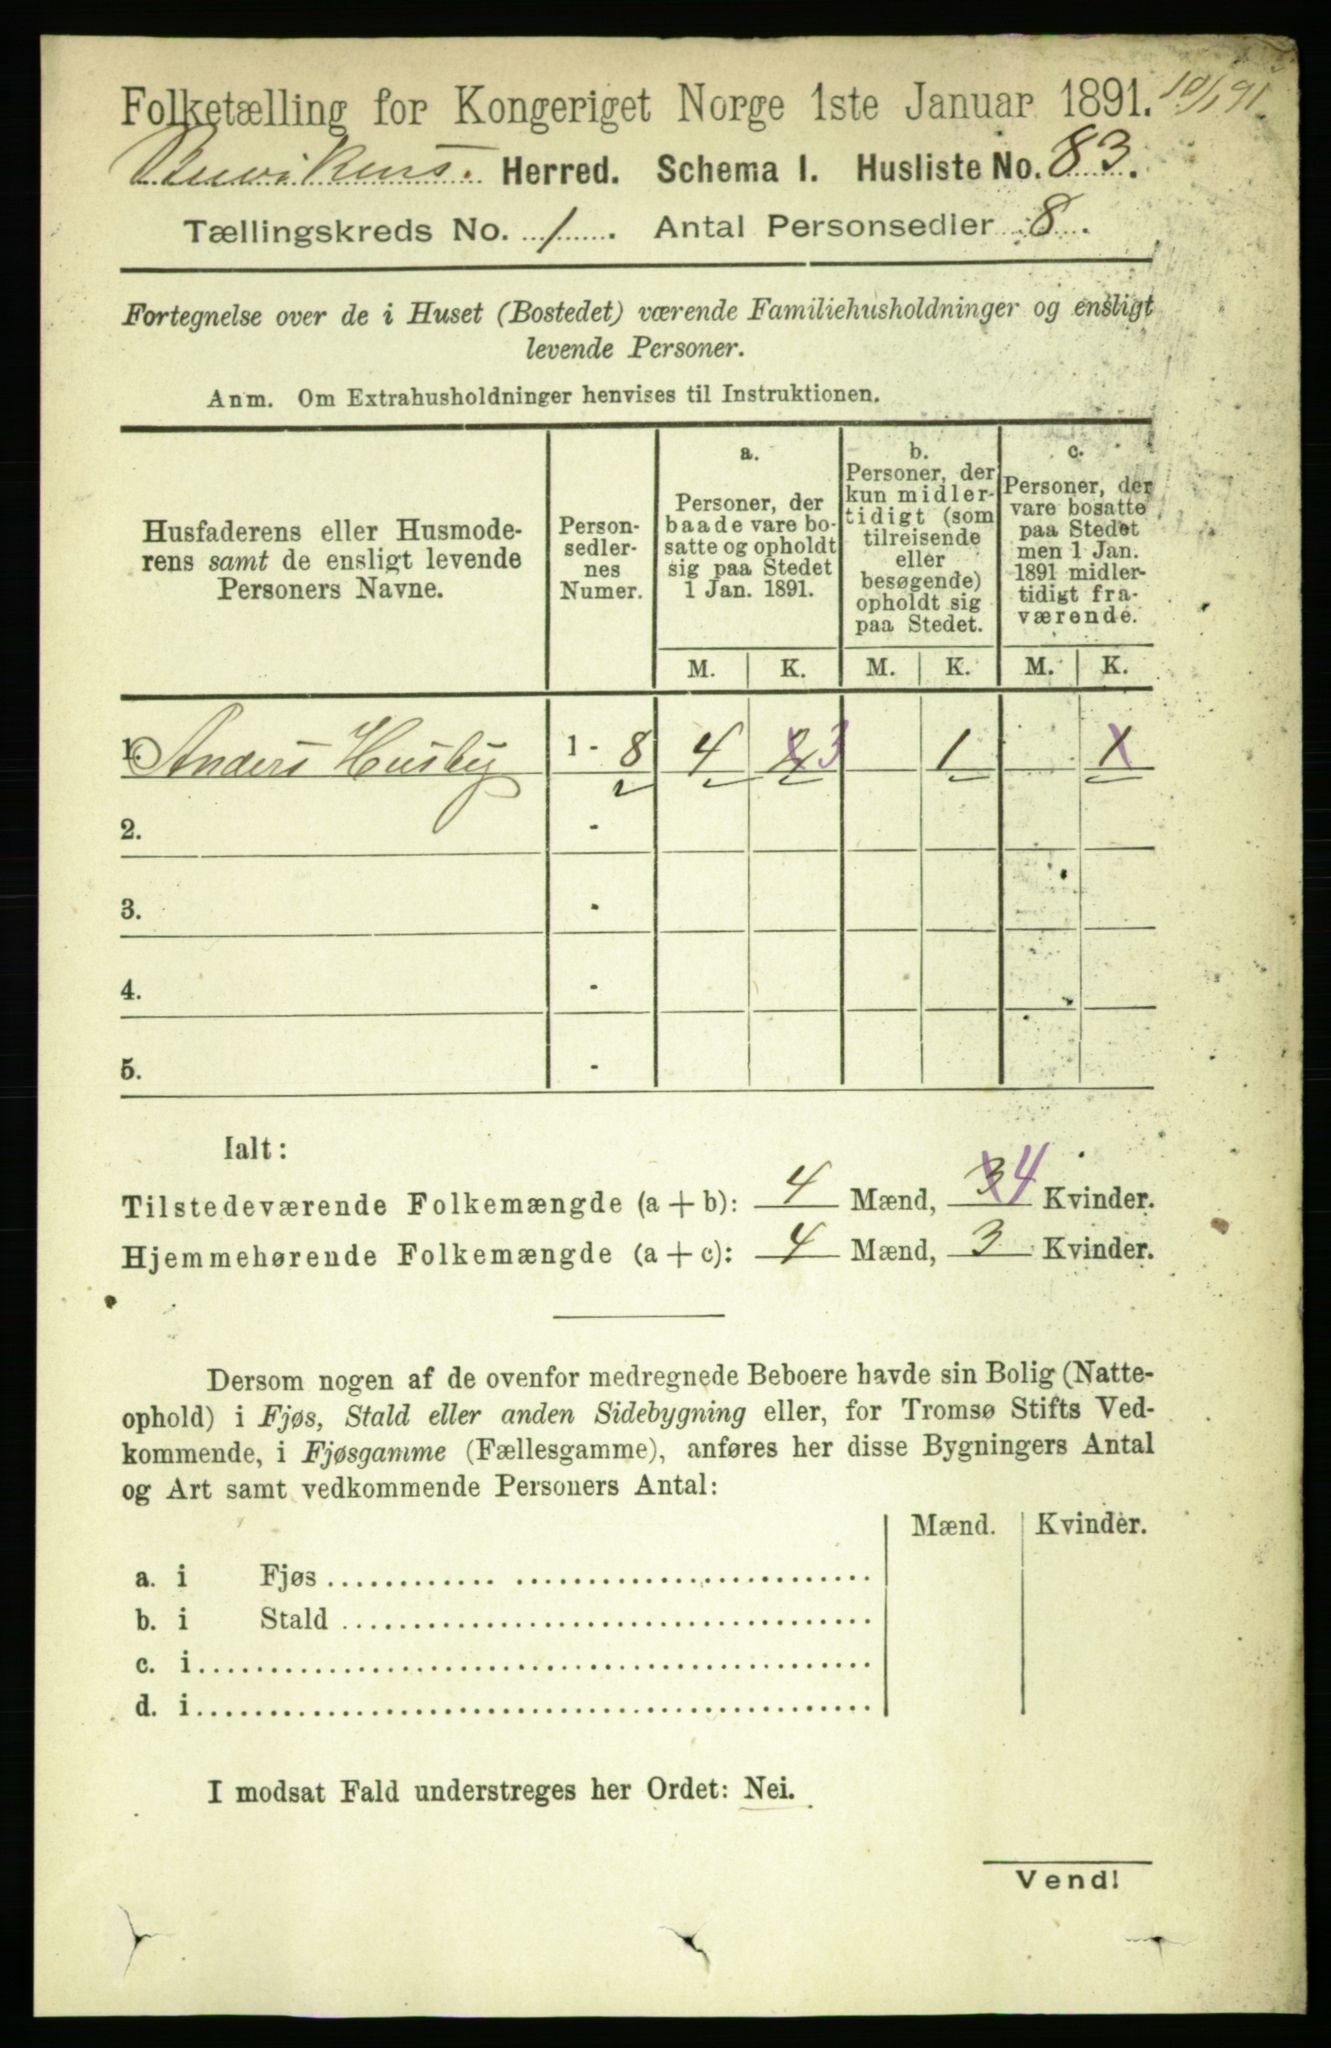 Folketælling for Kongeriget Norge 1ste Januar 1891. 10/1 91.
Buvikens Herred. Schema I. Husliste No. 83.
Tællingskreds No. 1. Antal Personsedler 8.
Fortegnelse over de i Huset (Bostedet) værende Familiehusholdninger og ensligt
levende Personer.
Anm. Om Extrahusholdninger henvises til Instruktionen.
Husfaderens eller Husmode-
rens samt de ensligt levende
Personers Navne.
Person-
sedler-
nes
Numer.
a.
Personer, der
baade vare bo-
satte og opholdt
sig paa Stedet
1 Jan. 1891.
b.
Personer, der
kun midler-
tidigt (som
tilreisende
eller
besøgende)
opholdt sig
paa Stedet.
c.
Personer, der
vare bosatte
paa Stedet
men 1 Jan.
1891 midler-
tidigt fra-
værende.
M. K. M. K. M. K.
1. Anders Husby 1 - 8 4 2 3 1 1
2. -
3. -
4. -
5. -
Ialt:
Tilstedeværende Folkemængde (a + b): 4 Mænd, 3 4 Kvinder.
Hjemmehørende Folkemængde (a + c): 4 Mænd, 3 Kvinder.
Dersom nogen af de ovenfor medregnede Beboere havde sin Bolig (Natte-
ophold) i Fjøs, Stald eller anden Sidebygning eller, for Tromsø Stifts Ved-
kommende, i Fjøsgamme (Fællesgamme), anføres her disse Bygningers Antal
og Art samt vedkommende Personers Antal:
Mænd. Kvinder.
a. i Fjøs
b. i Stald
c. i
d. i
I modsat Fald understreges her Ordet: Nei.
Vend!